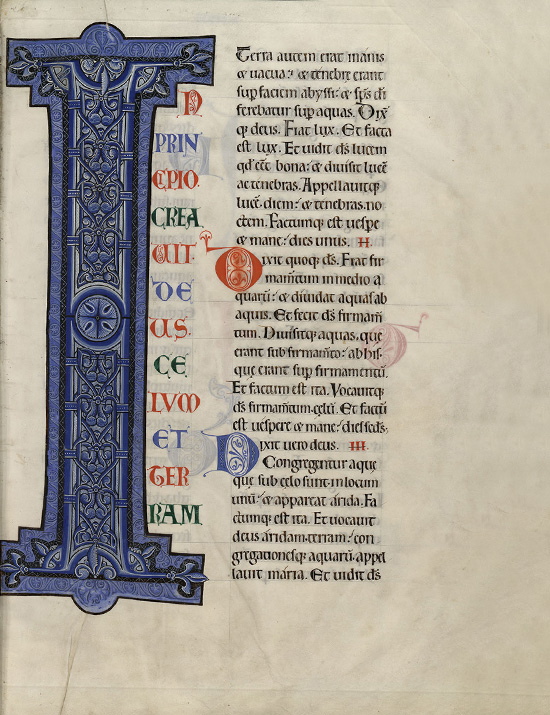 I
N
PRIN
CIPIO
CREA
VIT
DE
US
CE
LUM
ET
TER
RAM
Terra autem erat inanis
& uacua: & tenebre erant
sup faciem abyssi: & sps di
ferebatur sup aquas. Dix̄
q; deus. Fiat lux. Et facta
est lux. Et uidit ds lucem
qd eēt bona: & diuisit lucē
ac tenebras. Appellauitq;
lucē diem: & tenebras no
ctem. Factumq; est uespe
& mane: dies unus. II.
Dixit quoq; ds. Fiat fir
mam̄tum in medio a
quarū: & diuidat aquas ab
aquis. Et fecit ds firmam̄
tum. Diuisitq; aquas, que
erant sub firmam̄to: ab his
que erant sup firmamentū.
Et factum est ita. Vocauitq;
ds firmam̄tum celū. Et factū
est uespere & mane: dies seds.
Dixit uero deus. III.
Congregentur aque
que sub celo sunt in locum
unū: & appareat arida. Fa
ctumq; est ita. Et uocauit
deus aridam, terram: con
gregationesq; aquarū, appel
lauit maria. Et uidit ds